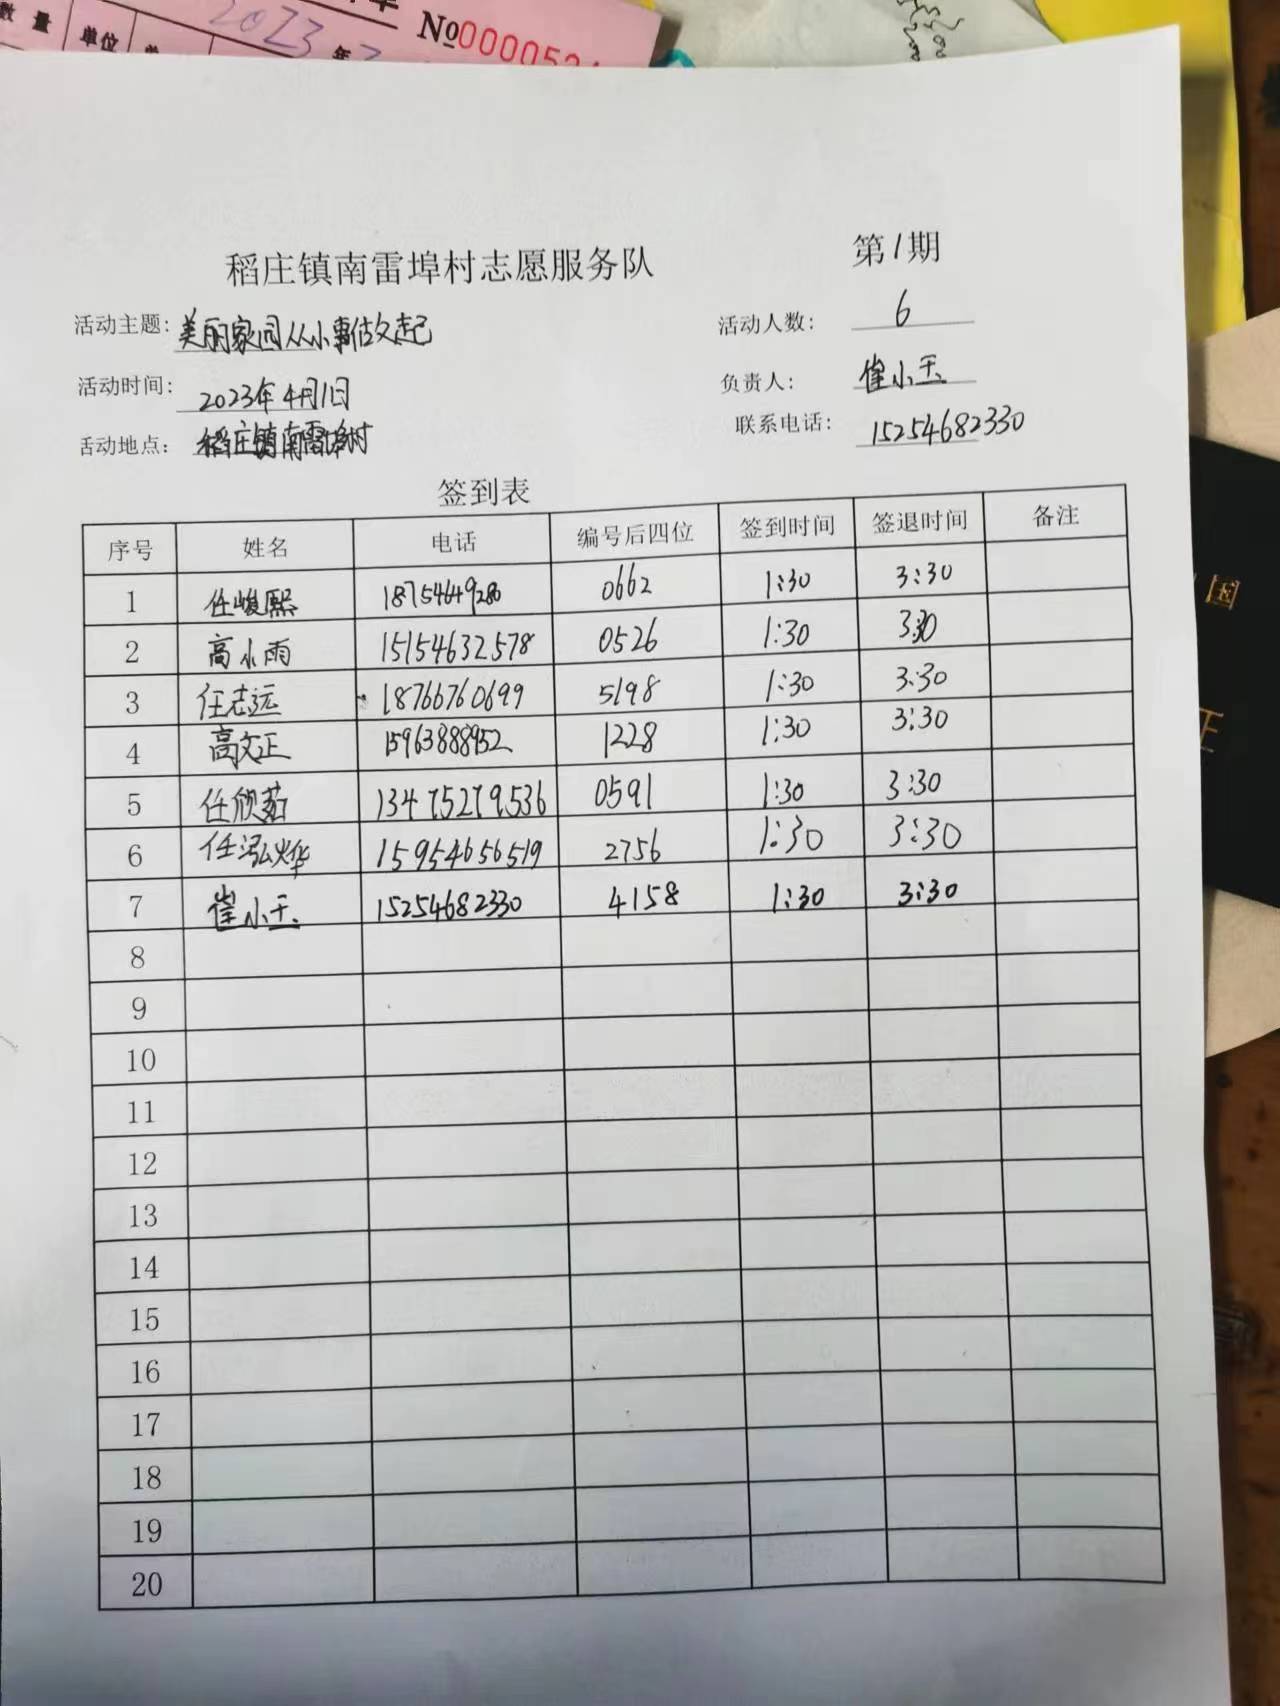 数量 单位
2023年
№0000524
稻庄镇南雷埠村志愿服务队 第1期
活动主题: 美丽家园从小事做起 活动人数: 6
活动时间: 2023年4月1日 负责人: 崔小玉
活动地点: 稻庄镇南雷埠村 联系电话: 15254682330
签到表
序号 姓名 电话 编号后四位 签到时间 签退时间 备注
1 任峻熙 18754649280 0662 1:30 3:30
2 高小雨 15154632578 0526 1:30 3:30
3 任志远 18766760699 5198 1:30 3:30
4 高文正 15963888952 1228 1:30 3:30
5 任欣茹 13475279536 0591 1:30 3:30
6 任泓烨 15954656519 2756 1:30 3:30
7 崔小玉 15254682330 4158 1:30 3:30
8
9
10
11
12
13
14
15
16
17
18
19
20
国
证